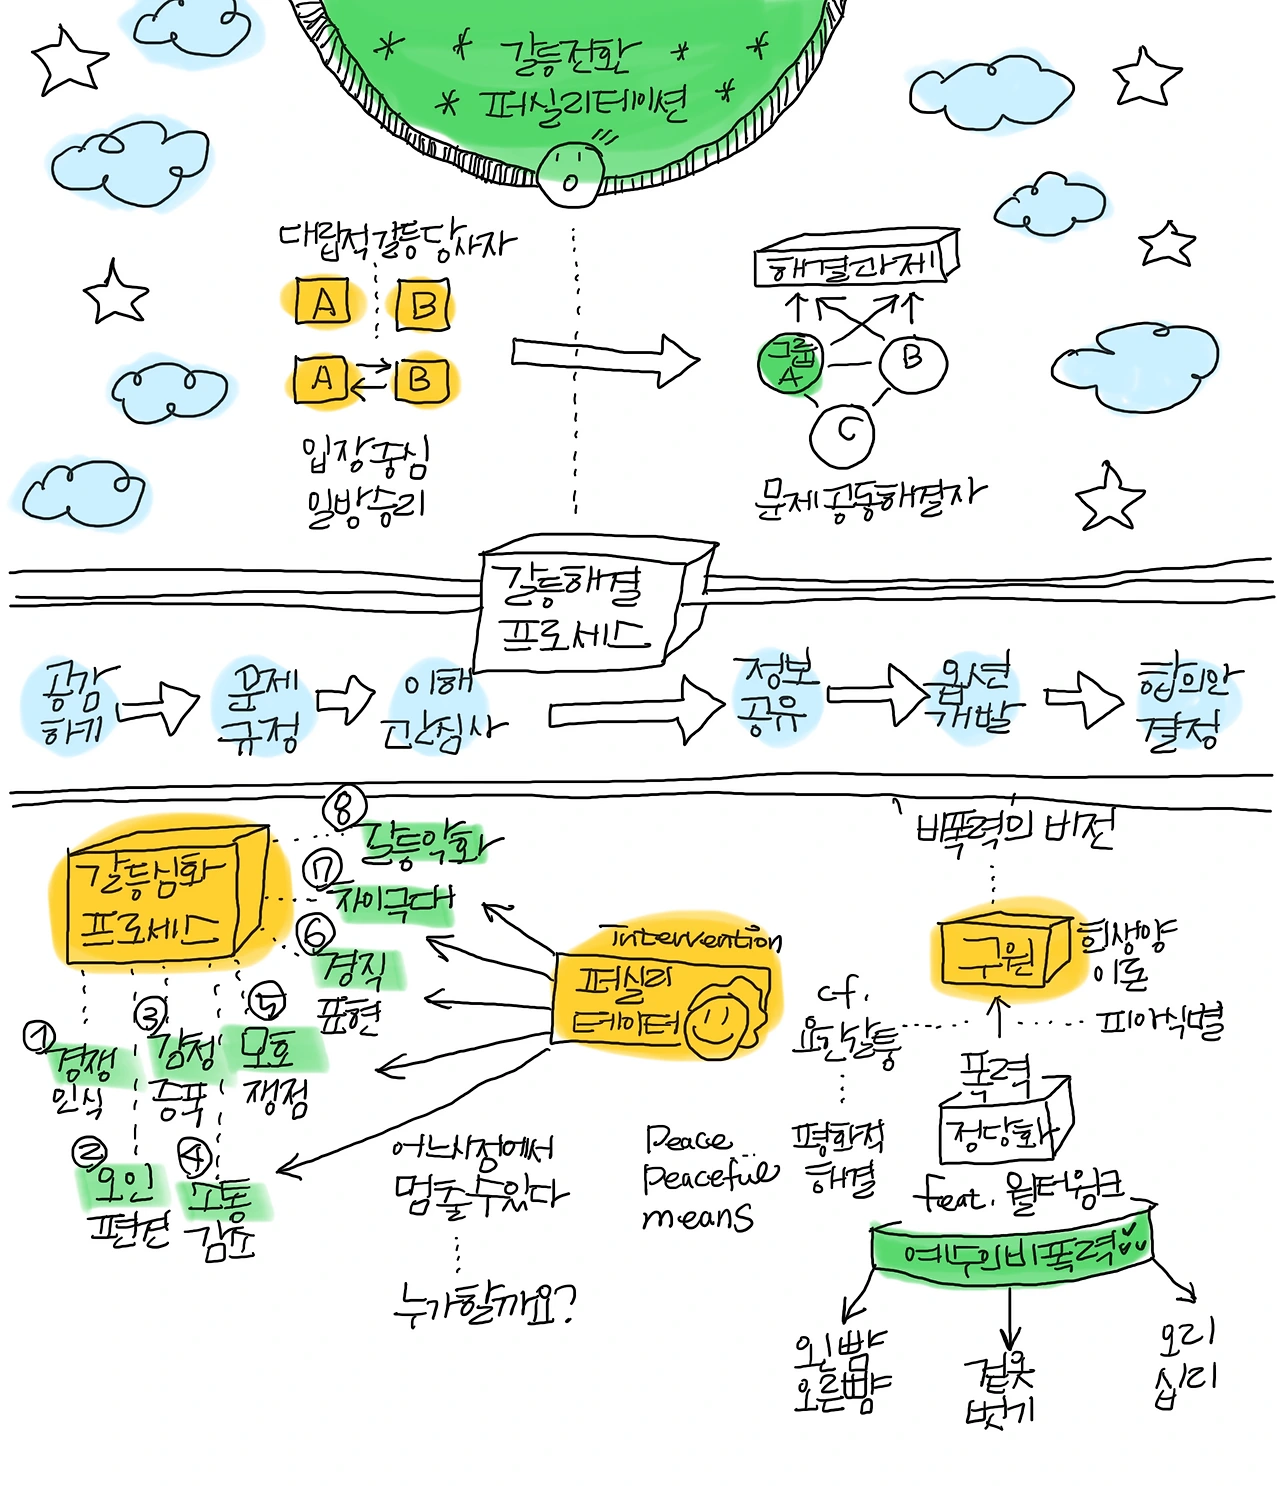 갈등전환
퍼실리테이션
대립적갈등당사자
A B
A B
입장중심
일방승리
해결과제
그룹
A
B
C
문제공동해결자
갈등해결
프로세스
공감
하기
문제
규정
이해
관심사
정보
공유
옵션
개발
합의안
결정
갈등심화
프로세스
⑧
갈등악화
⑦
차이극대
⑥
경직
표현
⑤
모호
쟁점
③
감정
증폭
①
경쟁
인식
②
오인
편견
④
소통
감소
intervention
퍼실리
테이터
어느시점에서
멈출수있다
누가할까요?
Peace...
Peaceful
means
비폭력의 비전
구원
희생양
이론
피아식별
cf.
요한갈퉁
평화적
해결
폭력
정당화
feat. 월터윙크
예수의비폭력
왼뺨
오른뺨
겉옷
벗기
오리
십리